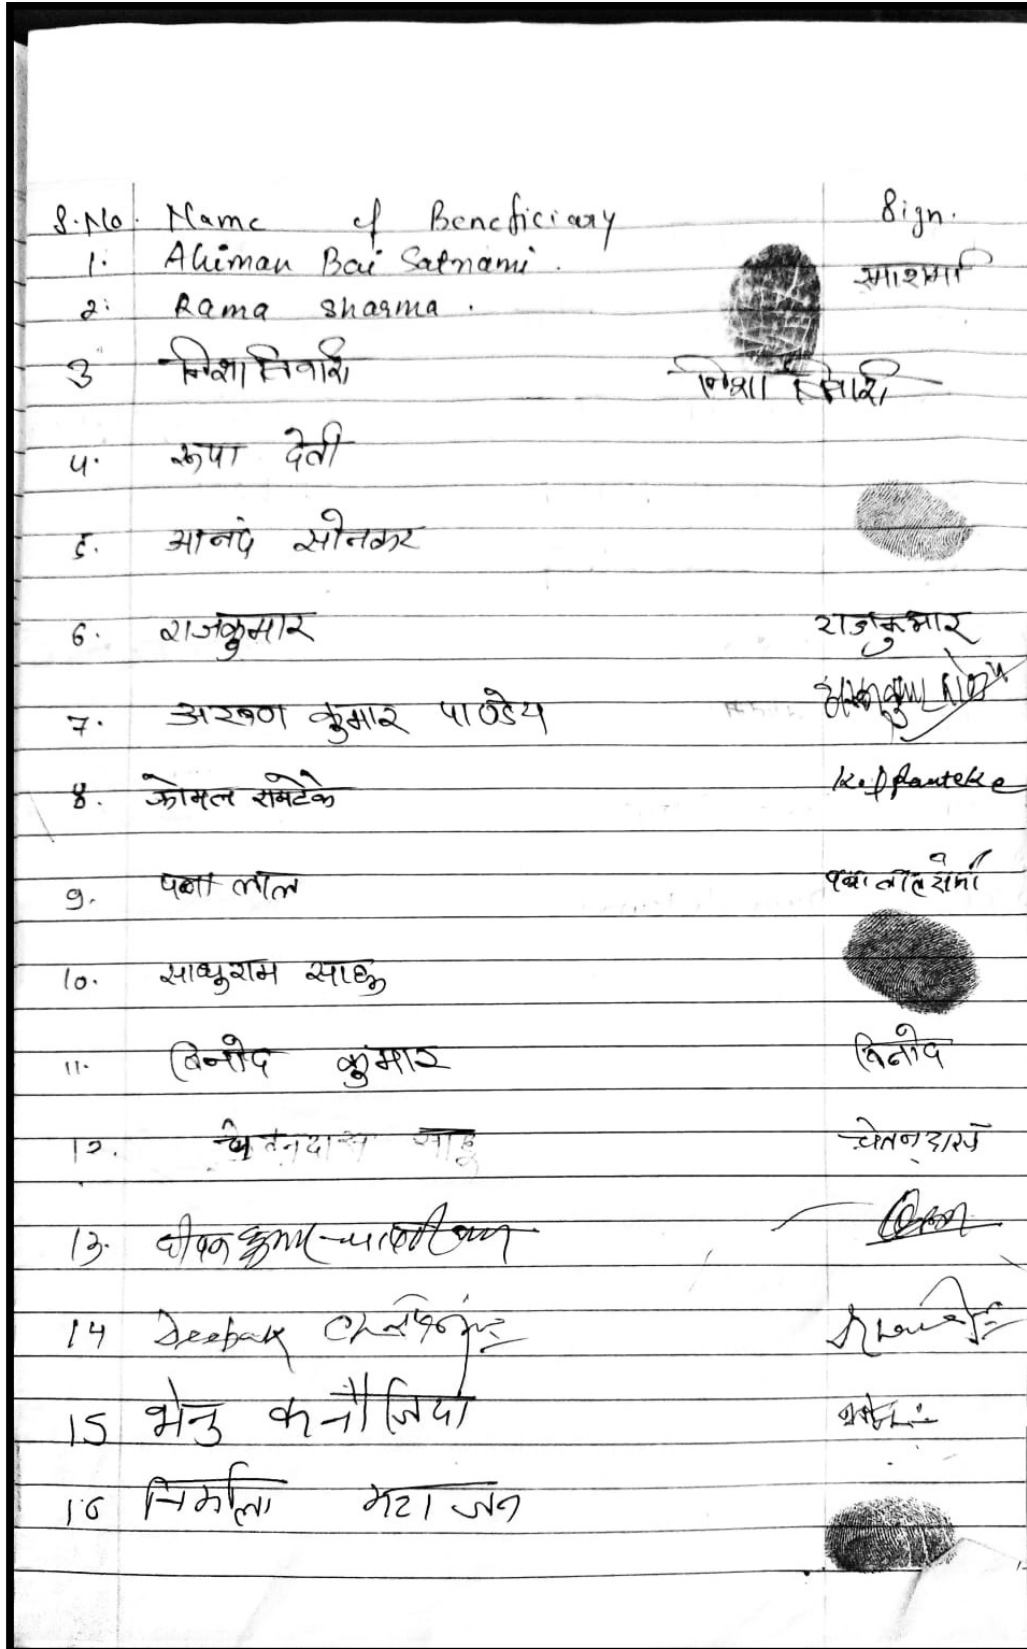 S.No. Name of Beneficiary Sign.
1. Ahiman Bai Satnami.
रमा शर्मा
2. Rama Sharma.
3 निशा तिवारी
निशा तिवारी
4. रूपा देवी
5. आनंद सोनकर
6. राजकुमार राजकुमार
7. अरूण कुमार पाण्डेय
8. कोमल रामटेके
9. पन्ना लाल
10. साधुराम साहू
11. विनोद कुमार विनोद
12. चेतनदास साहू चेतनदास
13. दीपक कुमार
14 Deepak
15 भेनु कनौजिया
16 निर्मला महाजन